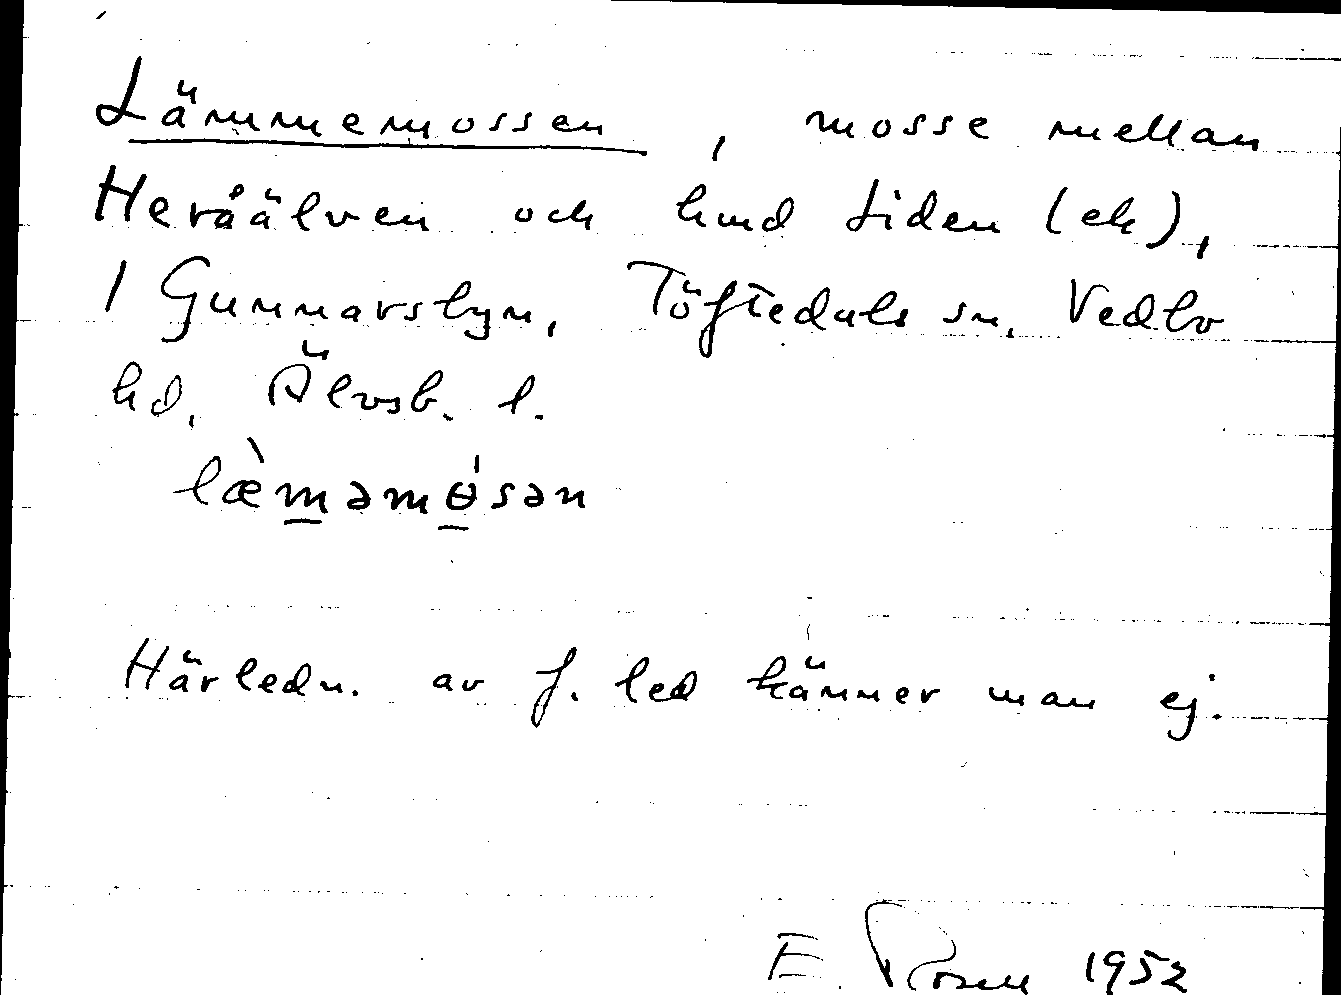 Lämmemossen, mosse mellan
Heråälven och hmd Liden (ek),
1 Gunnarsbyn, Töftedals sn, Vedbo
hd, Älvsb. l.
læ̀m̲əmɵ̲́sən
Härledn. av f. led känner man ej.
E. Rosell 1952